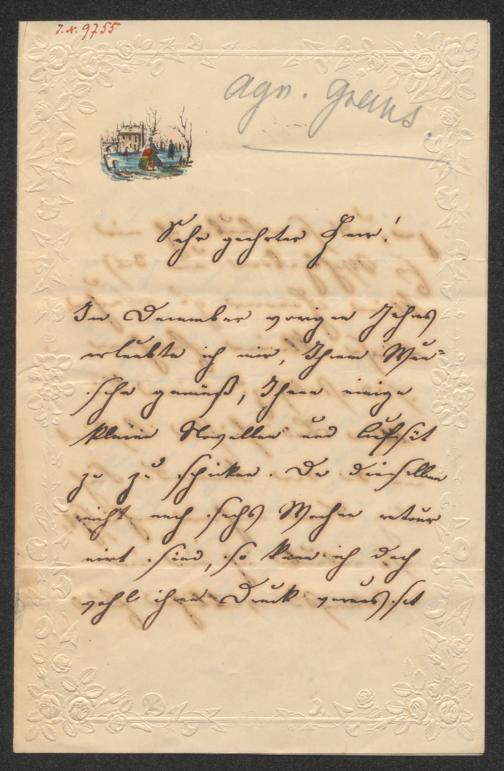 J. N. 9755
Agn. Graus
Sehr geehrter Herr!
Im December vorigen Jahres
erlaubte ich mir, Ihrem Wun-
sche gemäß, Ihnen einige
kleine Novellen und
zu zu schicken. Da dieselben
nicht nach sechs Wochen retour
nirt sind, so kann ich doch
wohl ihren Druck vorausset